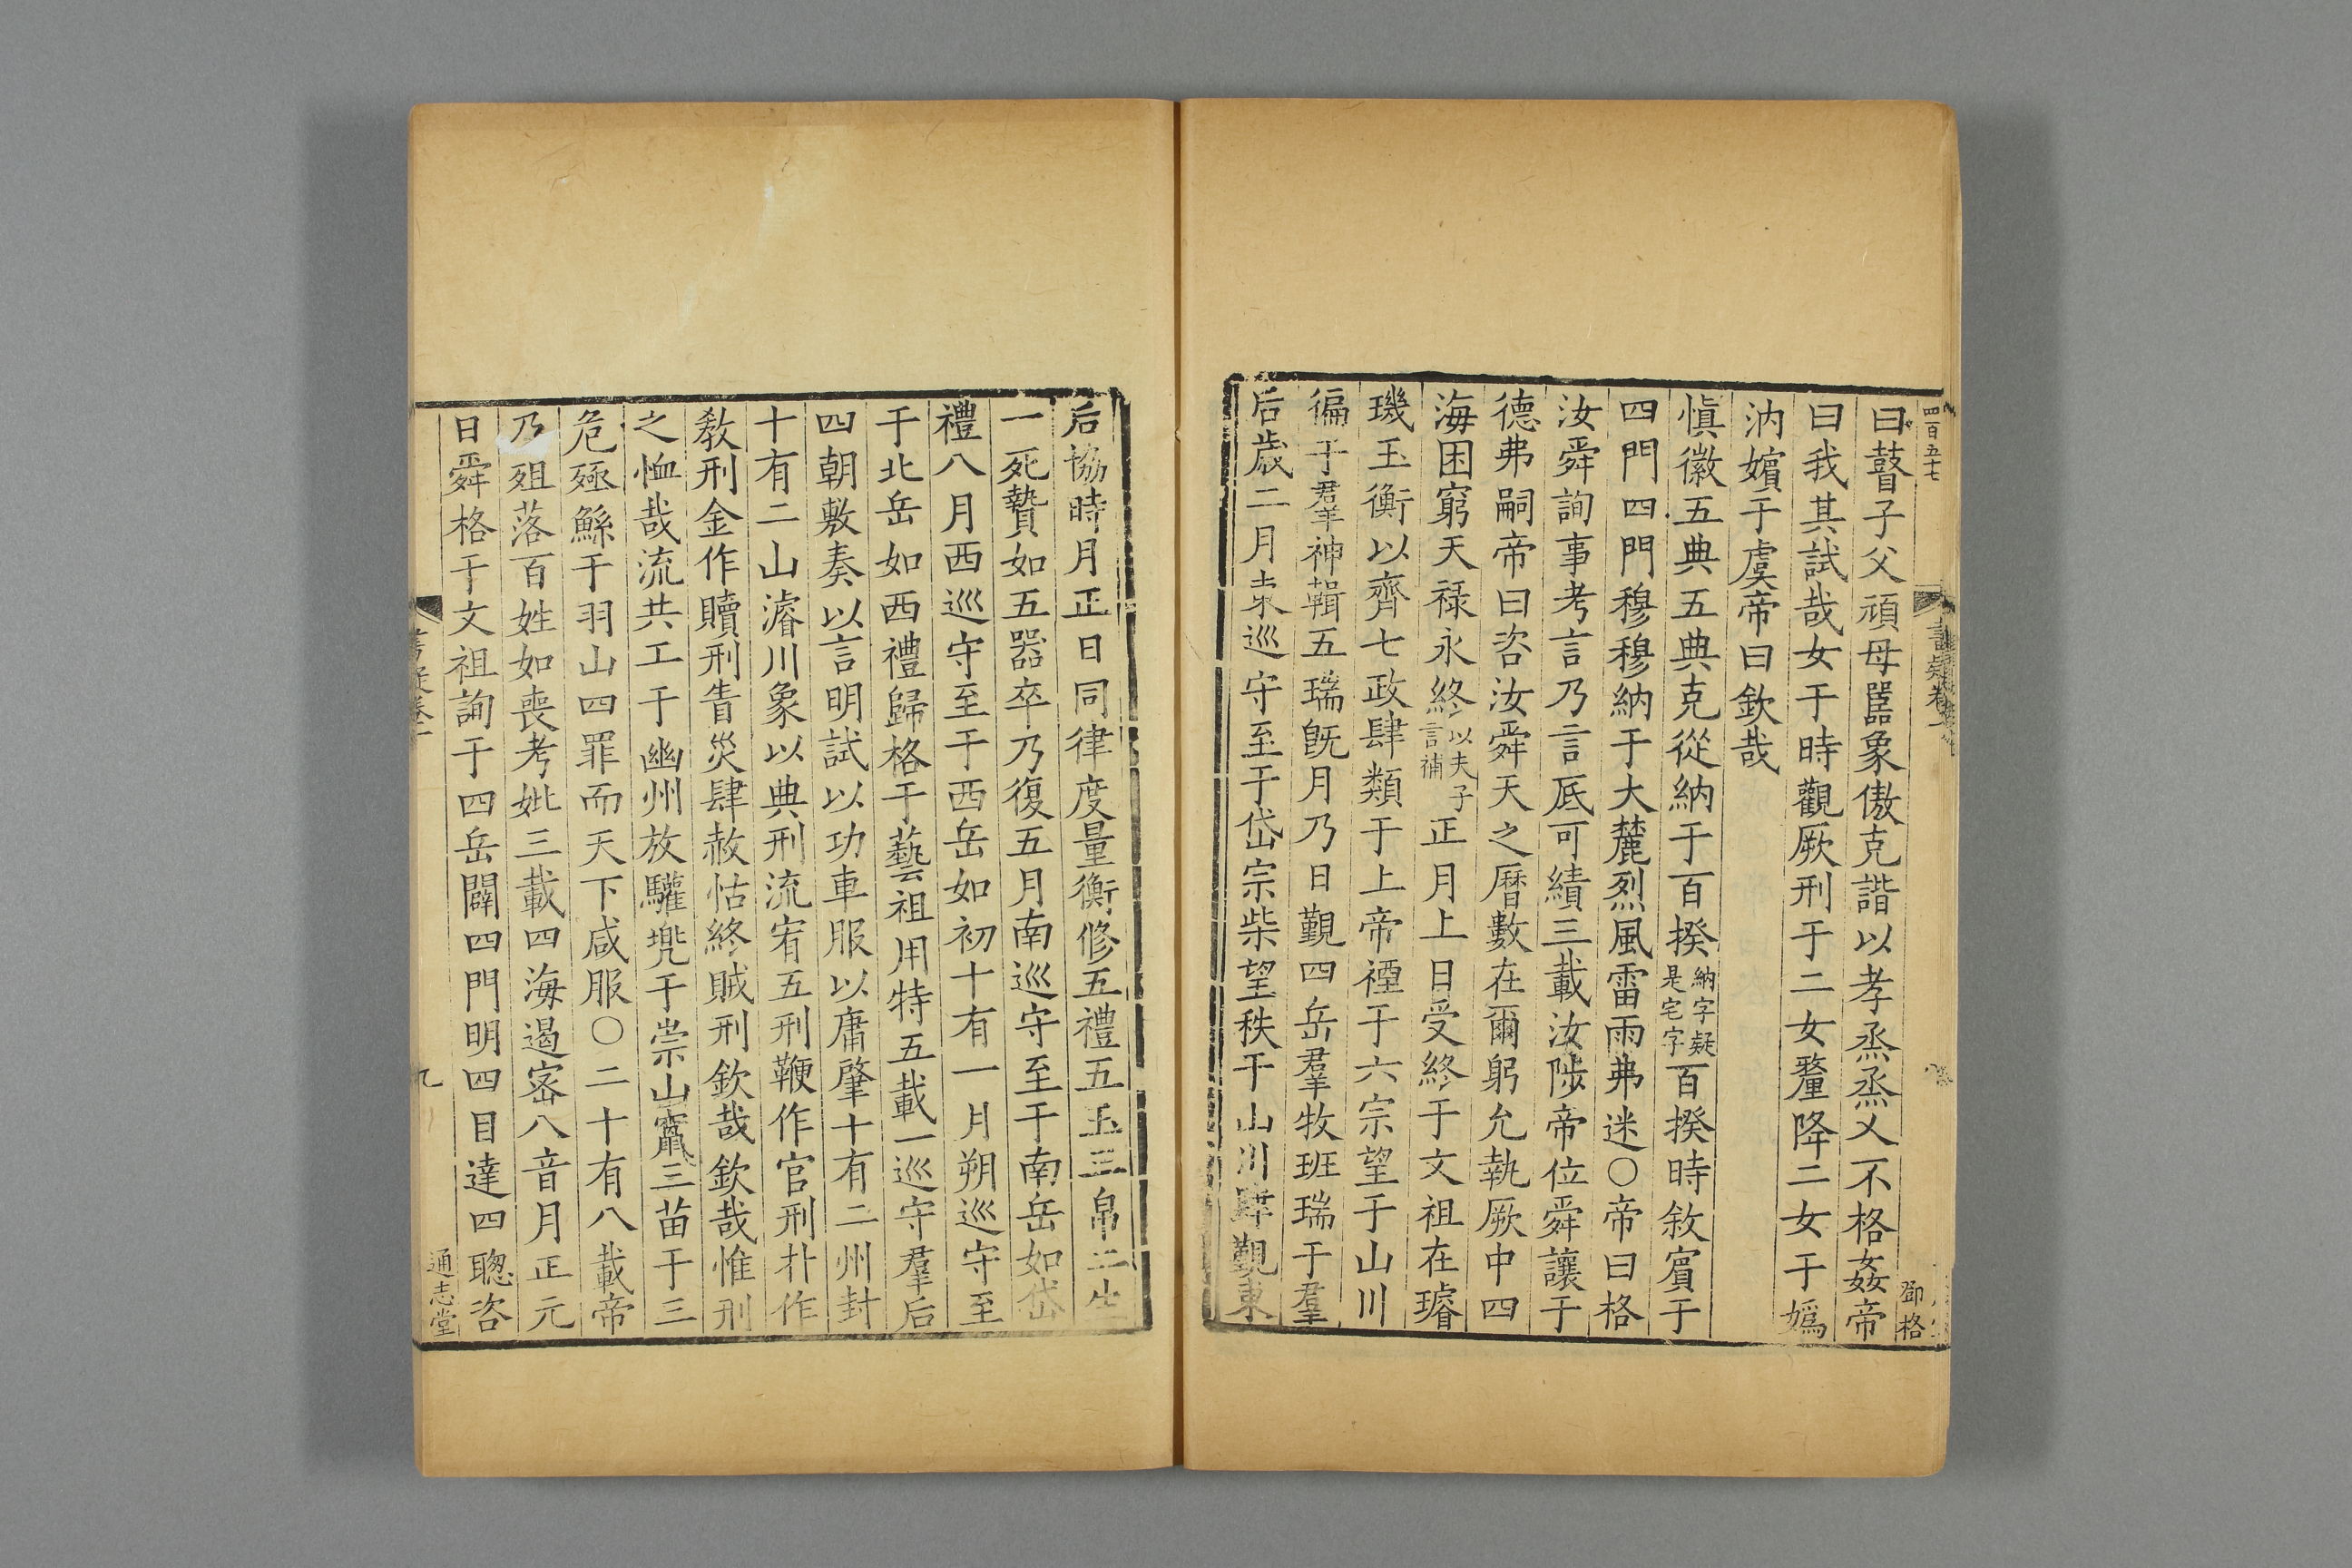 四百五十七
鄧格
曰瞽子父頑母嚚象傲克諧以孝烝烝乂不格姦帝
曰我其試哉女于時觀厥刑于二女釐降二女于嬀
汭嬪于虞帝曰欽哉
愼徽五典五典克從納于百揆納字疑是宅字百揆時敘賓于
四門四門穆穆納于大麓烈風雷雨弗迷○帝曰格
汝舜詢事考言乃言厎可績三載汝陟帝位舜讓于
德弗嗣帝曰咨汝舜天之曆數在爾躬允執厥中四
海困窮天祿永終以夫子言補正月上日受終于文祖在璿
璣玉衡以齊七政肆類于上帝禋于六宗望于山川
徧于羣神輯五瑞旣月乃日覲四岳羣牧班瑞于羣
后歲二月東巡守至于岱宗柴望秩于山川肆覲東
后協時月正日同律度量衡修五禮五玉三帛二生
一死贄如五器卒乃復五月南巡守至于南岳如岱
禮八月西巡守至于西岳如初十有一月朔巡守至
于北岳如西禮歸格于藝祖用特五載一巡守羣后
四朝敷奏以言明試以功車服以庸肇十有二州封
十有二山濬川象以典刑流宥五刑鞭作官刑扑作
敎刑金作贖刑眚災肆赦怙終賊刑欽哉欽哉惟刑
之恤哉流共工于幽州放驩兜于崇山竄三苗于三
危殛鯀于羽山四罪而天下咸服○二十有八載帝
乃殂落百姓如喪考妣三載四海遏密八音月正元
日舜格于文祖詢于四岳闢四門明四目達四聰咨
九
通志堂